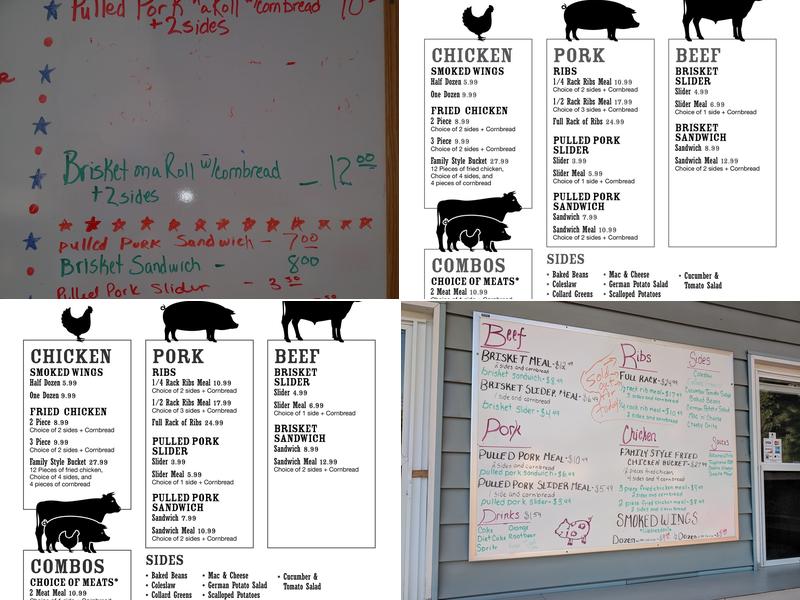 Pulled Pork on a Roll w/cornbread 10
+ 2 sides
Brisket on a Roll w/cornbread
+ 2 sides
- 12 00
Pulled Pork Sandwich - 7 00
Brisket Sandwich - 8 00
Pulled Pork Slider - 3 50
CHICKEN
SMOKED WINGS
Half Dozen 5.99
One Dozen 9.99
FRIED CHICKEN
2 Piece 8.99
Choice of 2 sides + Cornbread
3 Piece 9.99
Choice of 2 sides + Cornbread
Family Style Bucket 27.99
12 Pieces of fried chicken,
Choice of 4 sides, and
4 pieces of cornbread
COMBOS
CHOICE OF MEATS*
2 Meat Meal 10.99
PORK
RIBS
1/4 Rack Ribs Meal 10.99
Choice of 2 sides + Cornbread
1/2 Rack Ribs Meal 17.99
Choice of 3 sides + Cornbread
Full Rack of Ribs 24.99
PULLED PORK
SLIDER
Slider 3.99
Slider Meal 5.99
Choice of 1 side + Cornbread
PULLED PORK
SANDWICH
Sandwich 7.99
Sandwich Meal 10.99
Choice of 2 sides + Cornbread
BEEF
BRISKET
SLIDER
Slider 4.99
Slider Meal 6.99
Choice of 1 side + Cornbread
BRISKET
SANDWICH
Sandwich 8.99
Sandwich Meal 12.99
Choice of 2 sides + Cornbread
SIDES
• Baked Beans
• Coleslaw
• Collard Greens
• Mac & Cheese
• German Potato Salad
• Scalloped Potatoes
• Cucumber &
Tomato Salad
CHICKEN
SMOKED WINGS
Half Dozen 5.99
One Dozen 9.99
FRIED CHICKEN
2 Piece 8.99
Choice of 2 sides + Cornbread
3 Piece 9.99
Choice of 2 sides + Cornbread
Family Style Bucket 27.99
12 Pieces of fried chicken,
Choice of 4 sides, and
4 pieces of cornbread
COMBOS
CHOICE OF MEATS*
2 Meat Meal 10.99
PORK
RIBS
1/4 Rack Ribs Meal 10.99
Choice of 2 sides + Cornbread
1/2 Rack Ribs Meal 17.99
Choice of 3 sides + Cornbread
Full Rack of Ribs 24.99
PULLED PORK
SLIDER
Slider 3.99
Slider Meal 5.99
Choice of 1 side + Cornbread
PULLED PORK
SANDWICH
Sandwich 7.99
Sandwich Meal 10.99
Choice of 2 sides + Cornbread
BEEF
BRISKET
SLIDER
Slider 4.99
Slider Meal 6.99
Choice of 1 side + Cornbread
BRISKET
SANDWICH
Sandwich 8.99
Sandwich Meal 12.99
Choice of 2 sides + Cornbread
SIDES
• Baked Beans
• Coleslaw
• Collard Greens
• Mac & Cheese
• German Potato Salad
• Scalloped Potatoes
• Cucumber &
Tomato Salad
Beef
BRISKET MEAL - $12.99
2 sides and cornbread
brisket sandwich - $8.99
BRISKET SLIDER MEAL - $6
side and cornbread
brisket slider - $4.99
Sold out for today
Pork
PULLED PORK MEAL - $10.99
2 sides and cornbread
pulled pork sandwich -
PULLED PORK SLIDER MEAL - $5.99
side and cornbread
pulled pork slider - $3.99
Drinks $1.59
Coke Orange
Diet Coke Rootbeer
Sprite
Ribs
FULL RACK - $24.99
3 sides and cornbread
Chicken
FAMILY STYLE FRIED
CHICKEN BUCKET - $27.99
12 pieces fried chicken,
4 sides and 4 cornbread
3 piece fried chicken meal -
2 sides and cornbread
2 piece fried chicken meal -
2 sides and cornbread
SMOKED WINGS
Dozen
Sides
Coleslaw
Cucumber Tomato Salad
Baked Beans
German Potato Salad
Mac n' Cheese
Sauces